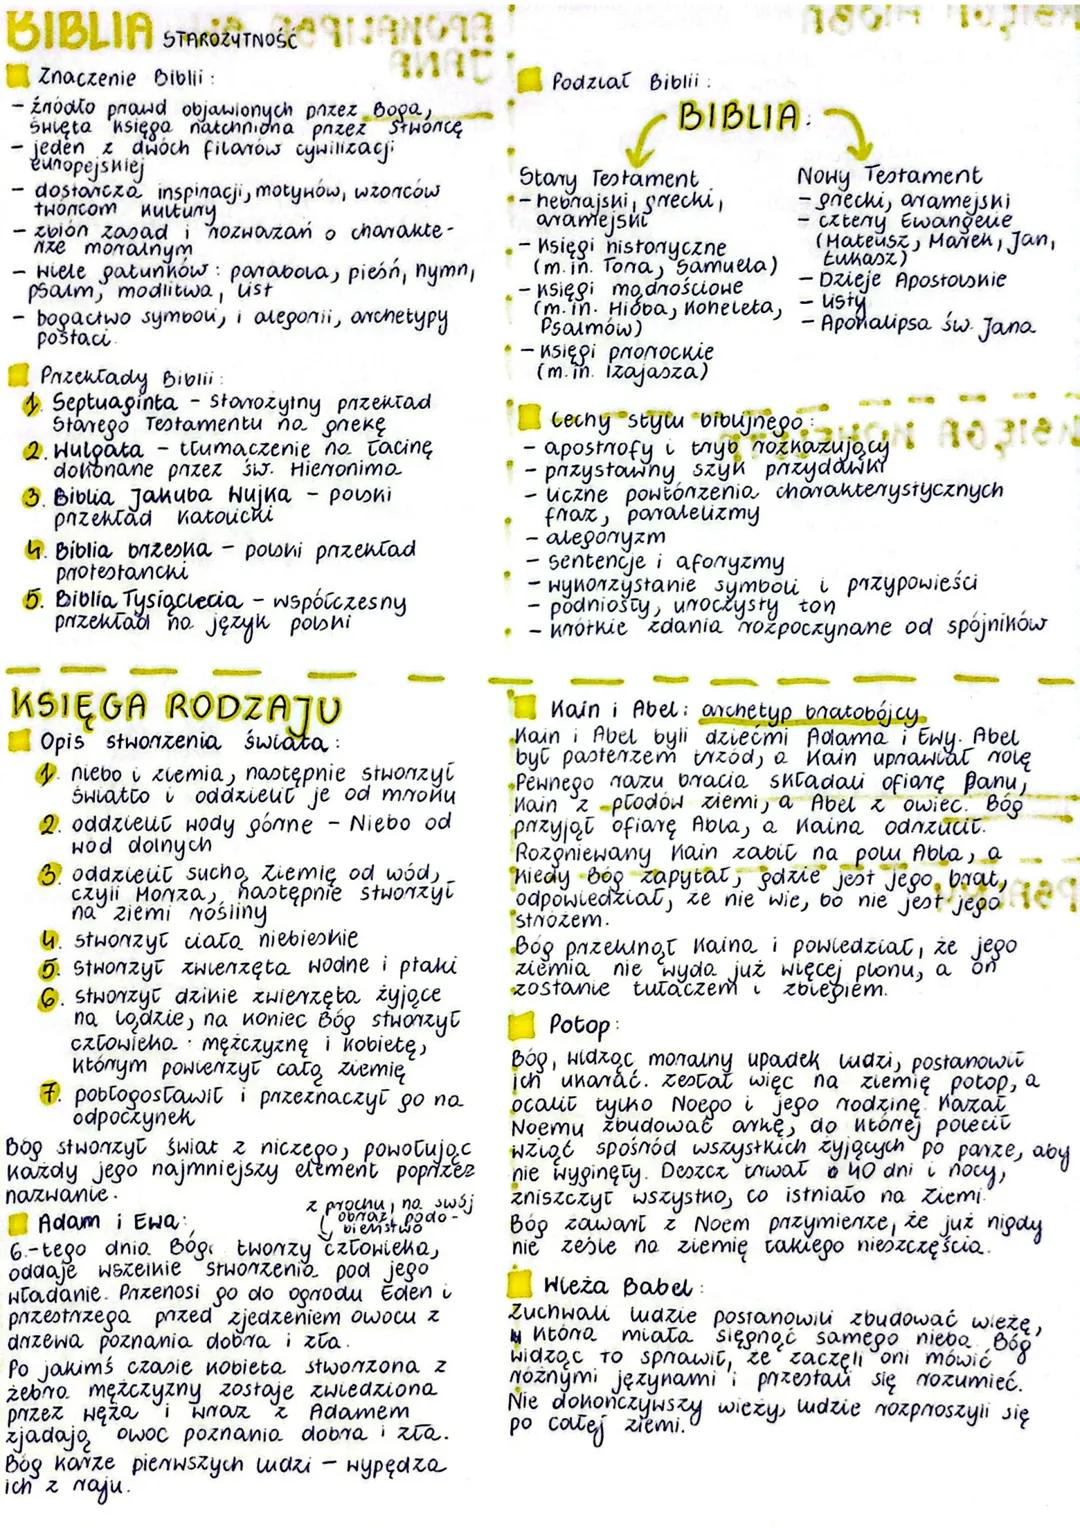 BIBLIA STAROŻYTNOŚĆ
Znaczenie Biblii:
- źródło prawd objawionych przez Boga,
święta księga natchniona przez Stwórcę
- jeden z dwóch filarów cywilizacji
europejskiej
- dostarcza inspiracji, motywów, wzorców
twórcom kultury
- zbiór zasad i rozważań o charakte-
rze moralnym
- wiele gatunków: parabola, pieśń, hymn,
psalm, modlitwa, list
- bogactwo symboli, i alegorii, archetypy
postaci
Przekłady Biblii:
1. Septuaginta - starożytny przekład
Starego Testamentu na grekę
2. Wulgata - tłumaczenie na łacinę
dokonane przez św. Hieronima
3. Biblia Jakuba Wujka - polski
przekład katolicki
4. Biblia brzeska - polski przekład
protestancki
5. Biblia Tysiąclecia - współczesny
przekład na język polski
Podział Biblii:
BIBLIA:
Stary Testament
- hebrajski, grecki,
aramejski
- Księgi historyczne
(m.in. Tora, Samuela)
- Księgi mądrościowe
(m.in. Hioba, Koheleta,
Psalmów)
- Księgi prorockie
(m.in. Izajasza)
Nowy Testament
- grecki, aramejski
- cztery Ewangelie
(Mateusz, Marek, Jan,
Łukasz)
- Dzieje Apostolskie
- Listy
- Apokalipsa św. Jana
Cechy stylu biblijnego:
- apostrofy i tryb rozkazujący
- przystawny szyk przydawki
- liczne powtórzenia charakterystycznych
fraz, paralelizmy
- alegoryzm
- sentencje i aforyzmy
- wykorzystanie symboli i przypowieści
- podniosły, uroczysty ton
- krótkie zdania rozpoczynane od spójników
KSIĘGA RODZAJU
Opis stworzenia świata:
1. niebo i ziemia, następnie stworzył
światło i oddzielił je od mroku
2. oddzielił wody górne - Niebo od
wód dolnych
3. oddzielił suchą ziemię od wód,
czyli Morza, następnie stworzył
na ziemi rośliny
4. stworzył ciała niebieskie
5. stworzył zwierzęta wodne i ptaki
6. stworzył dzikie zwierzęta żyjące
na lądzie, na koniec Bóg stworzył
człowieka: mężczyznę i kobietę,
którym powierzył całą ziemię
7. pobłogosławił i przeznaczył go na
odpoczynek
Bóg stworzył świat z niczego, powołując
każdy jego najmniejszy element poprzez
nazwanie.
Adam i Ewa:
z prochu, na swój
obraz, podo-
bieństwo
6.-tego dnia Bóg tworzy człowieka,
oddaje wszelkie stworzenia pod jego
władanie. Przenosi go do ogrodu Eden i
przestrzega przed zjedzeniem owocu z
drzewa poznania dobra i zła.
Po jakimś czasie kobieta stworzona z
żebra mężczyzny zostaje zwiedziona
przez węża i wraz z Adamem
zjadają owoc poznania dobra i zła.
Bóg karze pierwszych ludzi - wypędza
ich z raju.
Kain i Abel: archetyp bratobójcy
Kain i Abel byli dziećmi Adama i Ewy. Abel
był pasterzem trzód, a Kain uprawiał rolę
Pewnego razu bracia składali ofiarę Panu,
Kain z płodów ziemi, a Abel z owiec. Bóg
przyjął ofiarę Abla, a Kaina odrzucił.
Rozgniewany Kain zabił na polu Abla, a
kiedy Bóg zapytał, gdzie jest jego brat,
odpowiedział, że nie wie, bo nie jest jego
stróżem.
Bóg przeklnął Kaina i powiedział, że jego
ziemia nie wyda już więcej plonu, a on
zostanie tułaczem i zbiegiem.
Potop:
Bóg, widząc moralny upadek ludzi, postanowił
ich ukarać. Zesłał więc na ziemię potop, a
ocalił tylko Noego i jego rodzinę. Kazał
Noemu zbudować arkę, do której polecił
wziąć spośród wszystkich żyjących po parze, aby
nie wyginęły. Deszcz trwał 40 dni i nocy,
zniszczył wszystko, co istniało na Ziemi.
Bóg zawarł z Noem przymierze, że już nigdy
nie ześle na ziemię takiego nieszczęścia.
Wieża Babel:
Zuchwali ludzie postanowili zbudować wieżę,
która miała sięgnąć samego nieba. Bóg
widząc to sprawił, że zaczęli oni mówić
różnymi językami i przestali się rozumieć.
Nie dokończywszy wieży, ludzie rozproszyli się
po całej ziemi.